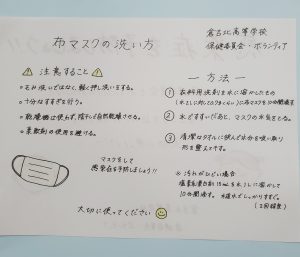 布マスクの洗い方
倉吉北高等学校
保健委員会・ボランティア
注意すること
もみ洗いではなく、軽く押し洗いをする。
十分なすすぎを行う。
乾燥機は使わず、陰干し自然乾燥させる。
柔軟剤の使用を避ける。
マスクをして
感染症を予防しましょう!!
大切に使ってください
ー 方法 ー
① 衣料用洗剤を水に溶かしたもの
に布マスクを10分間浸す
② 水ですすいだあと、マスクの水気をとる。
③ 清潔なタオルに挟んで水分を吸い取り
形を整えて干す。
※ 汚れがひどい場合
塩素系漂白剤15mLを水1Lに溶かして
10分間浸す。水道水でしっかりすすぐ。